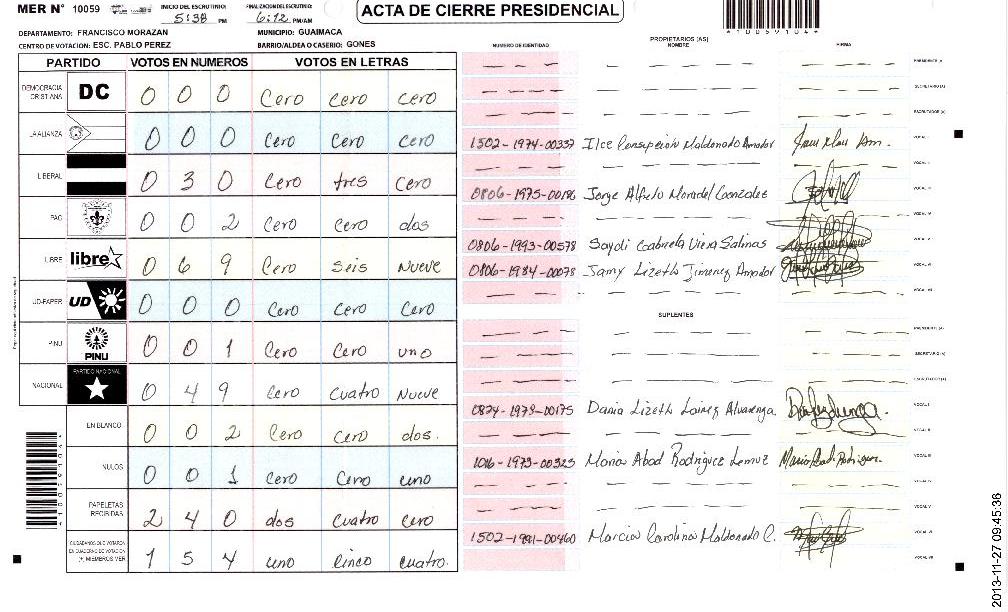 MER Nº 10059
INICIO DEL ESCRUTINIO:
5:38 PM
FINALIZACION DEL ESCRUTINIO:
6:12 PM/AM
ACTA DE CIERRE PRESIDENCIAL
*10059104*
DEPARTAMENTO: FRANCISCO MORAZAN
MUNICIPIO: GUAIMACA
CENTRO DE VOTACION: ESC. PABLO PEREZ
BARRIO/ALDEA O CASERIO: GONES
PARTIDO VOTOS EN NUMEROS VOTOS EN LETRAS
DEMOCRACIA CRISTIANA DC 0 0 0 Cero cero cero
LA ALIANZA 0 0 0 Cero Cero Cero
LIBERAL 0 3 0 Cero tres Cero
PAC 0 0 2 Cero Cero dos
LIBRE libre 0 6 9 Cero seis Nueve
UD-FAPER UD 0 0 0 Cero Cero Cero
PINU PINU 0 0 1 Cero Cero uno
NACIONAL PARTIDO NACIONAL 0 4 9 Cero Cuatro Nueve
EN BLANCO 0 0 2 Cero Cero dos.
NULOS 0 0 1 Cero Cero uno
PAPELETAS RECIBIDAS 2 4 0 dos cuatro cero
CIUDADANOS QUE VOTARON EN CUADERNO DE VOTACION (+) MIEMBROS MER 1 5 4 uno Cinco cuatro.
NUMERO DE IDENTIDAD
PROPIETARIOS (AS)
NOMBRE
FIRMA
PRESIDENTE (A)
SECRETARIO (A)
ESCRUTADOR (A)
1502-1974-00337 Ilce Concepción Maldonado Amador VOCAL I
VOCAL II
0806-1975-00186 Jorge Alfredo Moradel Gonzales VOCAL III
VOCAL IV
0806-1993-00578 Saydi Gabriela Viera Salinas VOCAL V
0806-1984-00078 Jamy Lizeth Jimenez Amador VOCAL VI
VOCAL VII
SUPLENTES
PRESIDENTE (A)
SECRETARIO (A)
ESCRUTADOR (A)
0824-1979-00175 Dania Lizeth Lainez Alvarenga VOCAL I
VOCAL II
1016-1973-00323 Maria Abad Rodriguez Lemuz VOCAL III
VOCAL IV
VOCAL V
1502-1991-00460 Marcia Carolina Maldonado C. VOCAL VI
VOCAL VII
2013-11-27 09:45:36